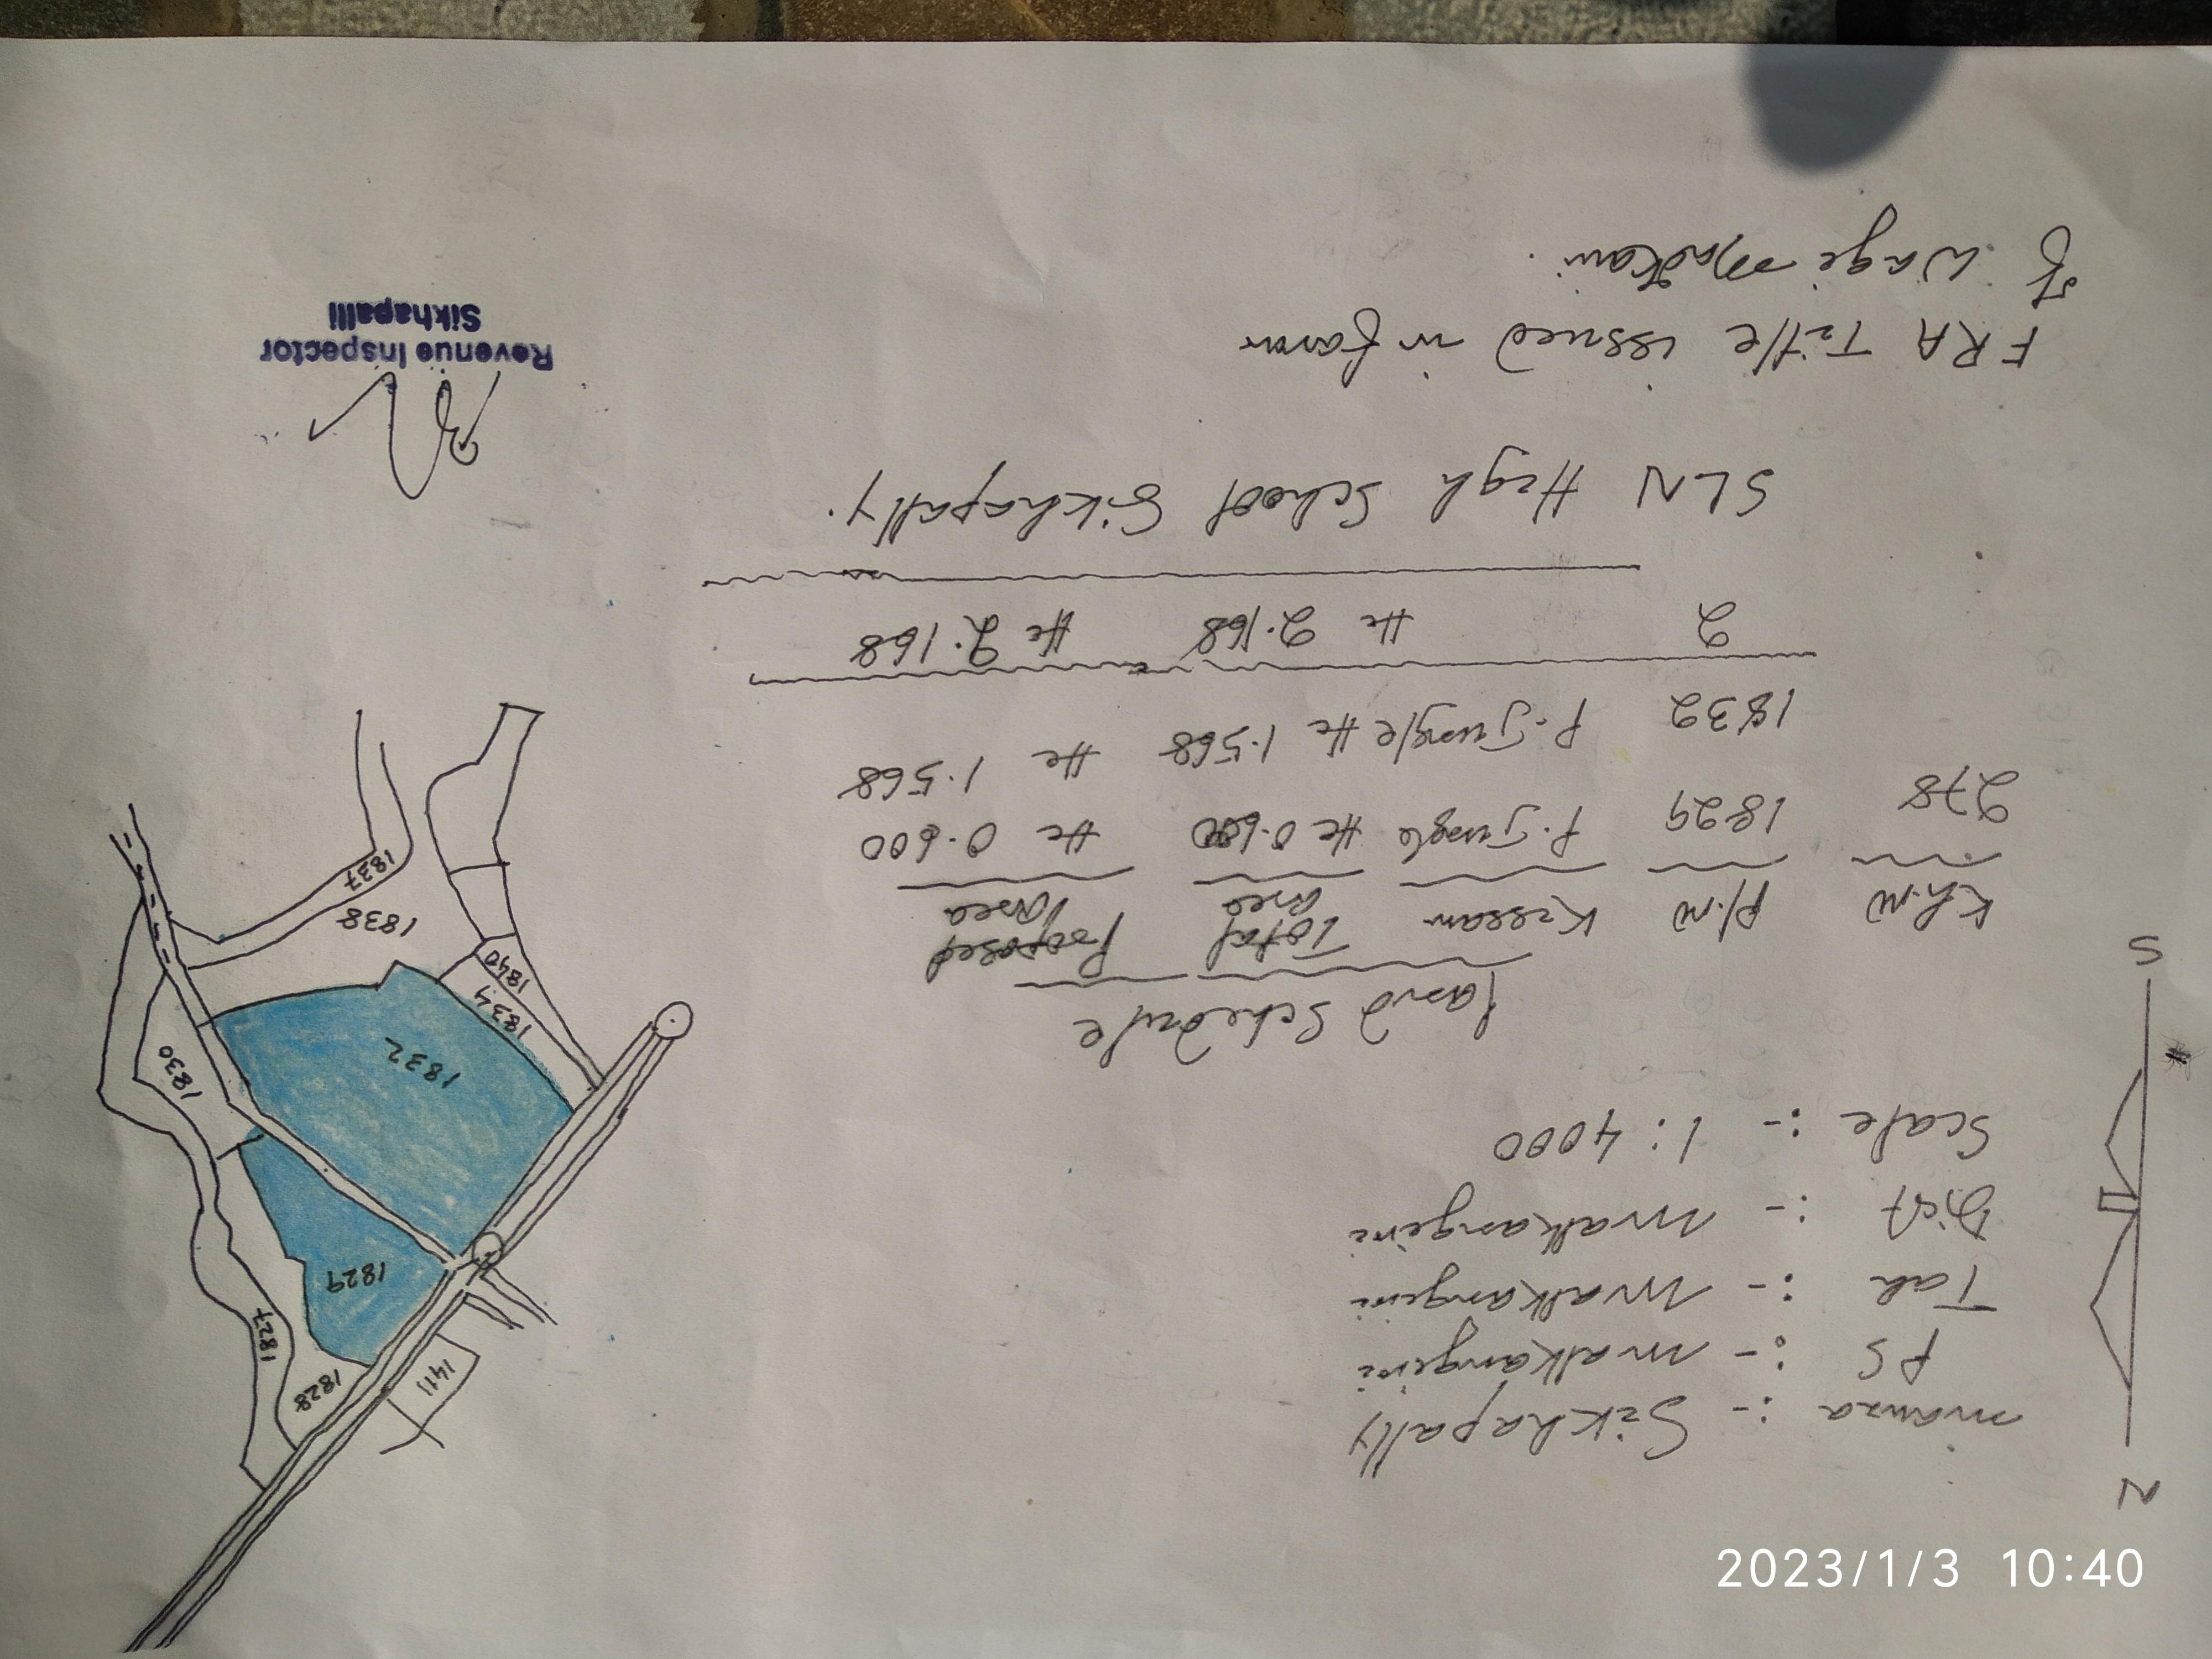 N
mauza :- Sikhapally
PS :- malkangiri
Tah :- malkangiri
Dist :- malkangiri
Scale :- 1:4000
S
Land Schedule
Kh.no Pl.no Kissam Total area Proposed area
278 1829 P.Jungle Hc 0.600 Hc 0.600
1832 P.Jungle Hc 1.568 Hc 1.568
2 Hc 2.168 Hc 2.168
SLN High School Sikhapally.
FRA Title issued in favour
of Wagi Madkami.
1411
1828
1827
1829
1830
1832
1834
1840
1838
1837
Revenue Inspector
Sikhapalli
2023/1/3 10:40